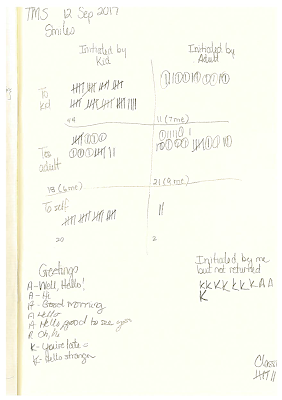 TMS 12 Sep 2017
Smiles
Initiated by
Kid
Initiated by
Adult
To
kid
44
11 (7 me)
To
adult
18 (6 me)
21 (9 me)
To self
20
2
Greetings
A - Well, Hello!
A - Hi
A - Good morning
A Hello
A Hello, good to see you
K - You're late
K - Hello stranger
Initiated by me
but not returned
K K K K K K A A
K